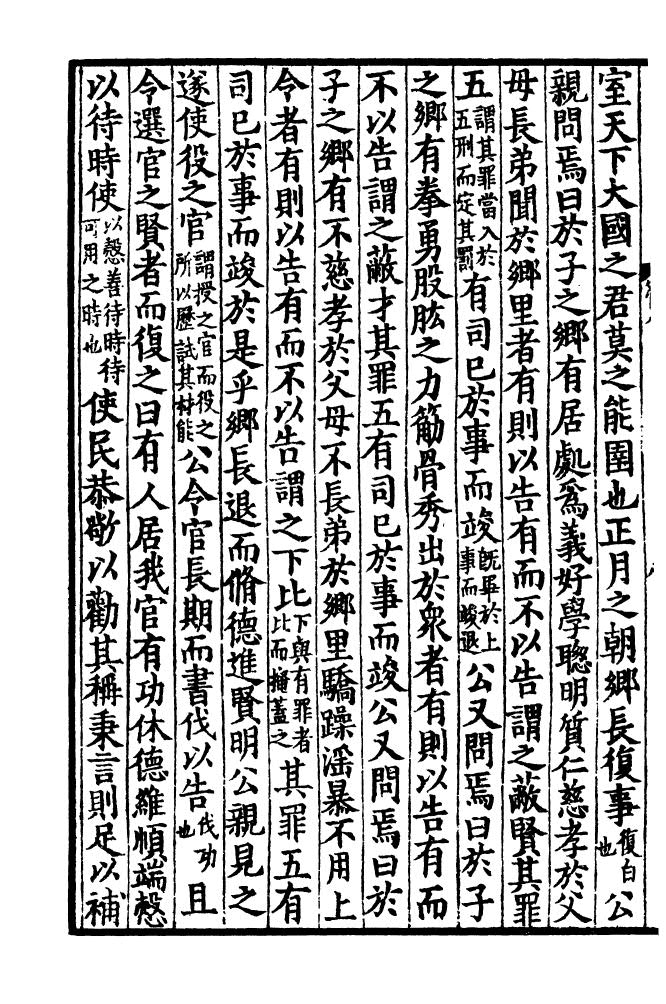 室天下大國之君莫之能圉也正月之朝鄉長復事復白也公
親問焉曰於子之鄉有居處爲義好學聰明質仁慈孝於父
母長弟聞於鄉里者有則以告有而不以告謂之蔽賢其罪
五謂其罪當入於五刑而定其罰有司已於事而竣既畢於上事而竣退公又問焉曰於子
之鄉有拳勇股肱之力筋骨秀出於衆者有則以告有而
不以告謂之蔽才其罪五有司已於事而竣公又問焉曰於
子之鄉有不慈孝於父母不長弟於鄉里驕躁淫暴不用上
令者有則以告有而不以告謂之下比下與有罪者比而掩蓋之其罪五有
司已於事而竣於是乎鄉長退而脩德進賢明公親見之
遂使役之官謂授之官而役之所以歷試其材能公令官長期而書伐以告伐功也且
令選官之賢者而復之曰有人居我官有功休德維順端慤
以待時使以慤善待時待可用之時也使民恭敬以勸其稱秉言則足以補